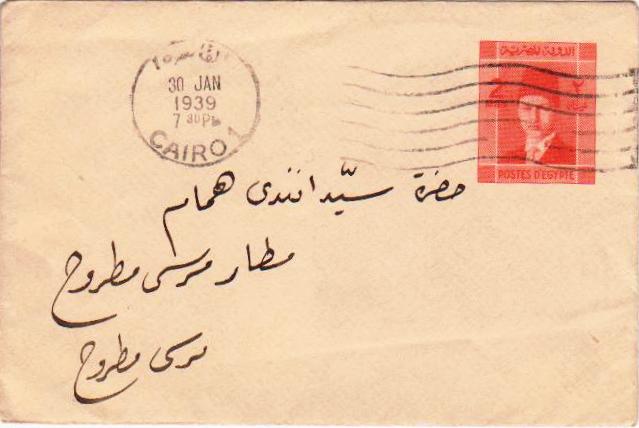 القاهرة
30 JAN
1939
7 30 PM
CAIRO 1
الدولة المصرية
٢
POSTES D'EGYPTE
حضرة سيد افندى همام
مطار مرسى مطروح
مرسى مطروح